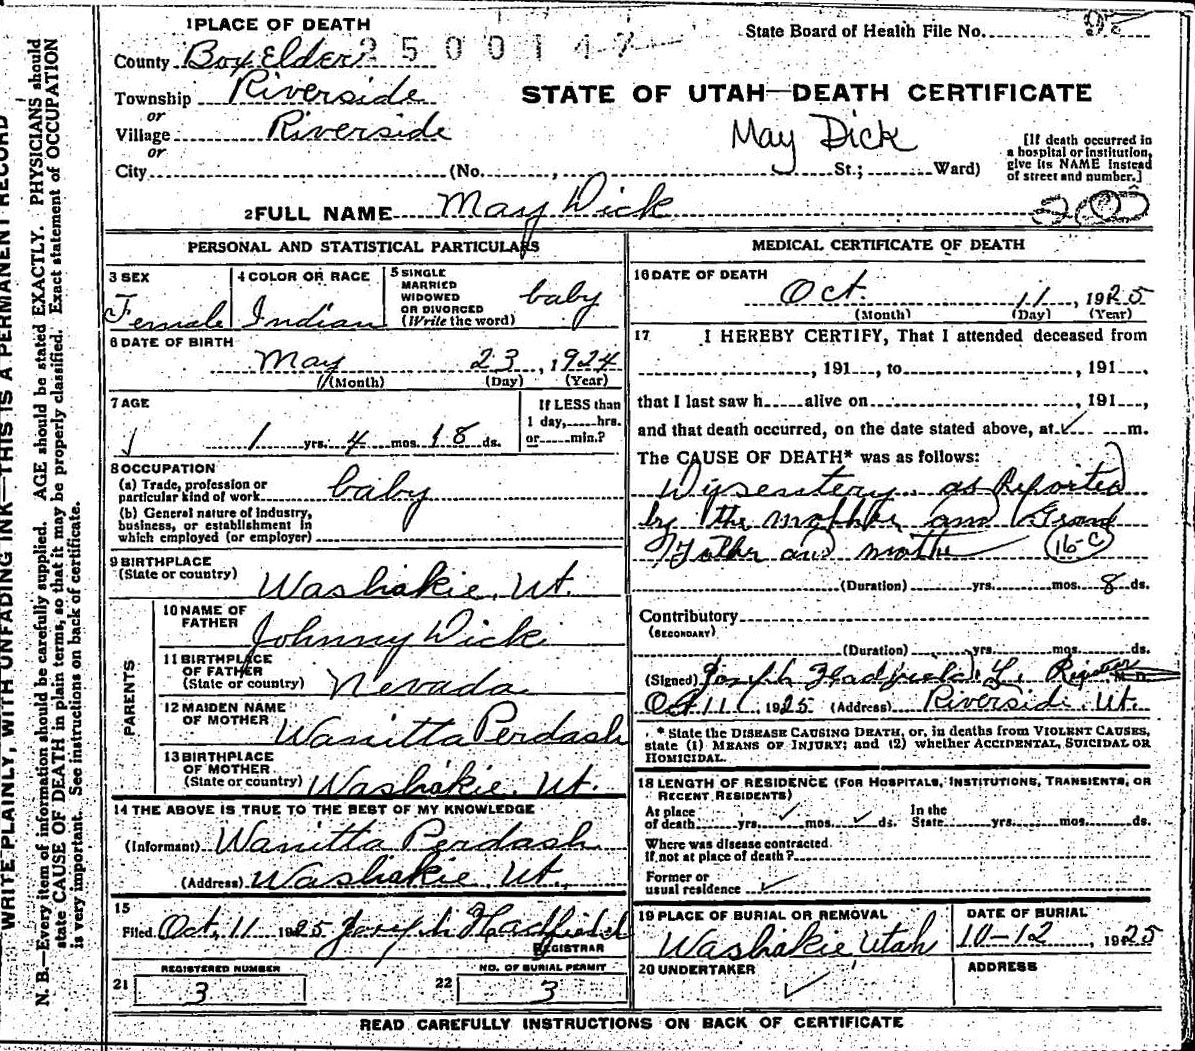 WRITE PLAINLY, WITH UNFADING INK—THIS IS A PERMANENT RECORD
N. B.—Every item of information should be carefully supplied. AGE should be stated EXACTLY. PHYSICIANS should
state CAUSE OF DEATH in plain terms, so that it may be properly classified. Exact statement of OCCUPATION
is very important. See instructions on back of certificate.
1 PLACE OF DEATH
State Board of Health File No. 95
County Box Elder 2500147
Township Riverside
STATE OF UTAH—DEATH CERTIFICATE
or
Village Riverside
May Dick
or
City (No. , St.; Ward)
[If death occurred in
a hospital or institution,
give its NAME instead
of street and number.]
2 FULL NAME May Dick
PERSONAL AND STATISTICAL PARTICULARS
3 SEX
Female
4 COLOR OR RACE
Indian
5 SINGLE
MARRIED
WIDOWED
OR DIVORCED
(Write the word)
baby
6 DATE OF BIRTH
May 23, 1924
(Month) (Day) (Year)
7 AGE
1 yrs. 4 mos. 18 ds.
If LESS than
1 day, hrs.
or min.?
8 OCCUPATION
(a) Trade, profession or
particular kind of work baby
(b) General nature of industry,
business, or establishment in
which employed (or employer)
9 BIRTHPLACE
(State or country) Washakie, Ut.
PARENTS
10 NAME OF
FATHER Johnny Dick
11 BIRTHPLACE
OF FATHER
(State or country) Nevada
12 MAIDEN NAME
OF MOTHER Wanitta Perdash
13 BIRTHPLACE
OF MOTHER
(State or country) Washakie, Ut.
14 THE ABOVE IS TRUE TO THE BEST OF MY KNOWLEDGE
(Informant) Wanitta Perdash
(Address) Washakie, Ut.
15
Filed Oct. 11 1925 Joseph Hadfield
REGISTRAR
REGISTERED NUMBER
21 3
NO. OF BURIAL PERMIT
22 3
MEDICAL CERTIFICATE OF DEATH
16 DATE OF DEATH
Oct. 11, 1925
(Month) (Day) (Year)
17 I HEREBY CERTIFY, That I attended deceased from
, 191 , to , 191 ,
that I last saw h alive on , 191 ,
and that death occurred, on the date stated above, at m.
The CAUSE OF DEATH* was as follows:
Dysenstery as Reported
by the mother and Grand
Father and mothe 16-C
(Duration) yrs. mos. 8 ds.
Contributory
(SECONDARY)
(Duration) yrs. mos. ds.
(Signed) Joseph Hadfield, L. M. D.
Oct 11, 1925 (Address) Riverside, Ut.
* State the DISEASE CAUSING DEATH, or, in deaths from VIOLENT CAUSES,
state (1) MEANS OF INJURY; and (2) whether ACCIDENTAL, SUICIDAL OR
HOMICIDAL.
18 LENGTH OF RESIDENCE (FOR HOSPITALS, INSTITUTIONS, TRANSIENTS, OR
RECENT RESIDENTS)
At place
of death yrs. mos. ds.
In the
State yrs. mos. ds.
Where was disease contracted
If not at place of death?
Former or
usual residence
19 PLACE OF BURIAL OR REMOVAL
Washakie, Utah
DATE OF BURIAL
10-12, 1925
20 UNDERTAKER
ADDRESS
READ CAREFULLY INSTRUCTIONS ON BACK OF CERTIFICATE